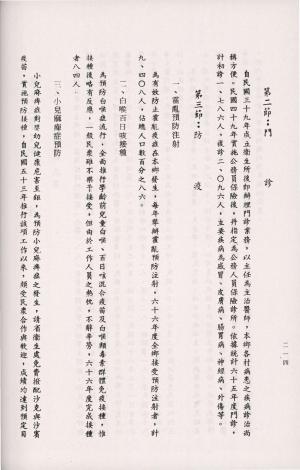 第二節：門　診
自民國三十九年成立衛生所後即辦理門診業務，以主任為主治醫師，本鄉各村病患之疾病診治尚
稱方便。民國四十九年實施公務人員保險後，并指定為公務人員保險診所。依據統計六十五年度門診，
計初診一、七八六人，複診二、〇九六人，主要疾病為感冒、皮膚病、腸胃病、神經病、外傷等。
第三節：防　疫
一、霍亂預防注射
為有效防止霍亂疫症在本鄉發生，每年舉辦霍亂預防注射，六十六年度全鄉接受預防注射者，計
九、四〇八人，佔總人口數百分之八六。
二、白喉百日咳接種
為預防白喉症流行，全面推行學齡前兒童白喉、百日咳混合疫苗及白喉類毒素群體免疫接種，惟
接種後略有反應，一般民眾雖不樂予接受，但由於工作人員之熱忱，不辭辛勞，六十六年度完成接種
者八四人。
三、小兒麻痺症預防
小兒麻痺症對嬰幼兒健康危害至鉅，為預防小兒麻痺症之發生，請省衛生處免費撥配沙克與沙賓
疫苗，實施預防接種，自民國五十三年推行該項工作以來，頗受民眾合作與歡迎，成績均達到預定目
二一四